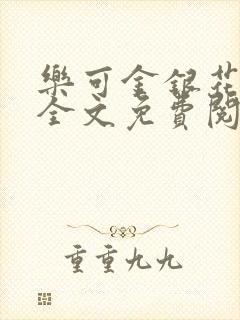 樂可金銀花
全文免費閱
重重九九